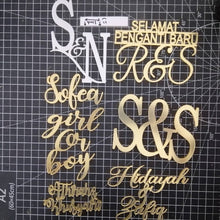 S
&N
SELAMAT
PENGANTI BARU
R&S
Sofea
girl
Or
boy
S&S
Hidayah
&
A2